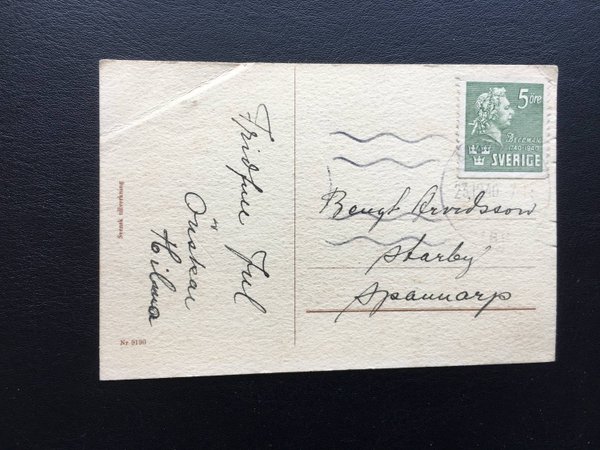 Fridfull Jul
Önskar
Hilma
Svensk tillverkning
Nr 9190
5 öre
BELLMAN
1740-1940
SVERIGE
Bengt Arvidsson
Starby
Spannarp